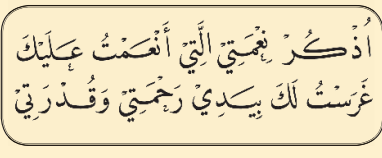 اُذْكُرْ نِعْمَتِيْ الَّتِيْ أَنْعَمْتُ عَلَيْكَ
غَرَسْتُ لَكَ بِيَدِيْ رَحْمَتِيْ وَقُدْرَتِيْ